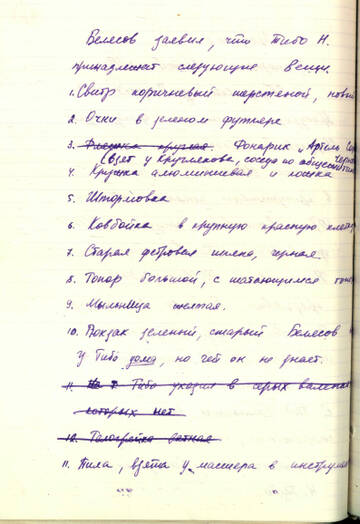 Белесов заявил, что Тибо Н.
принадлежат следующие вещи.
1. Свитр коричневый шерстеной, новый
2. Очки в зеленом футляре
3. Фляжка круглая. Фонарик "Артель
(взят у Крутлекова, соседа по общежитию
4. Кружка алюминиевая и ложка
5. Штормовка
6. Ковбойка в крупную красную клетку
7. Старая фетровая шляпа, черная.
8. Топор большой, с шатающимся
9. Мыльница желтая.
10. Рюкзак зеленый, старый Белесов
у Тибо дома, но чей он не знает.
11. Тибо уходил в серых валенках
которых нет
12. Телогрейка ватная
11. Пила, взята у массера в